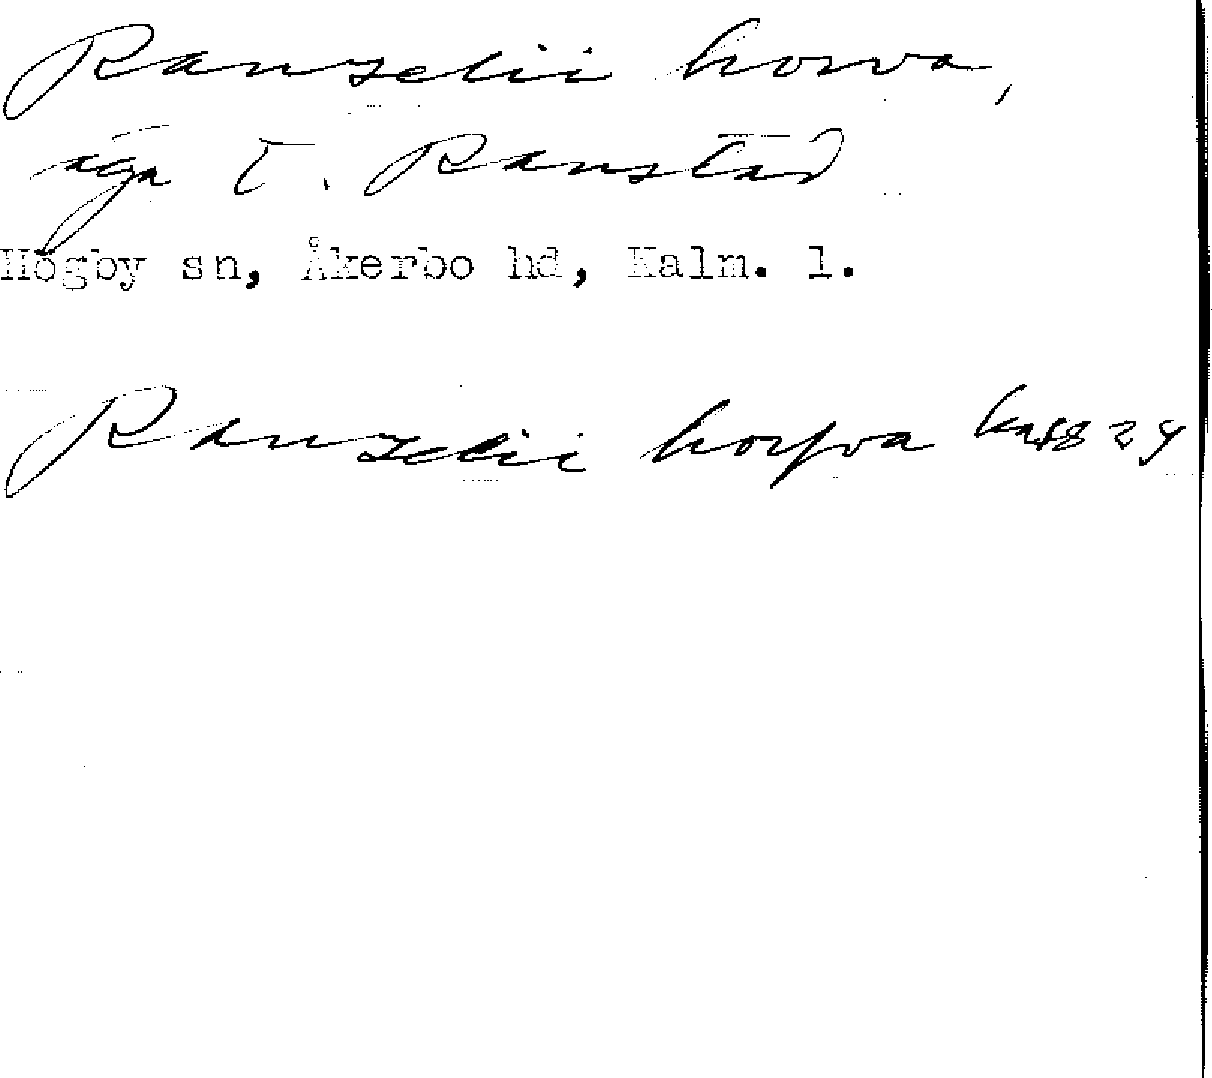 Ranzelii horva,
äga t. Ranstad
Högby sn, Åkerbo hd, Kalm. l.
Ranzelii horfva ka 1824